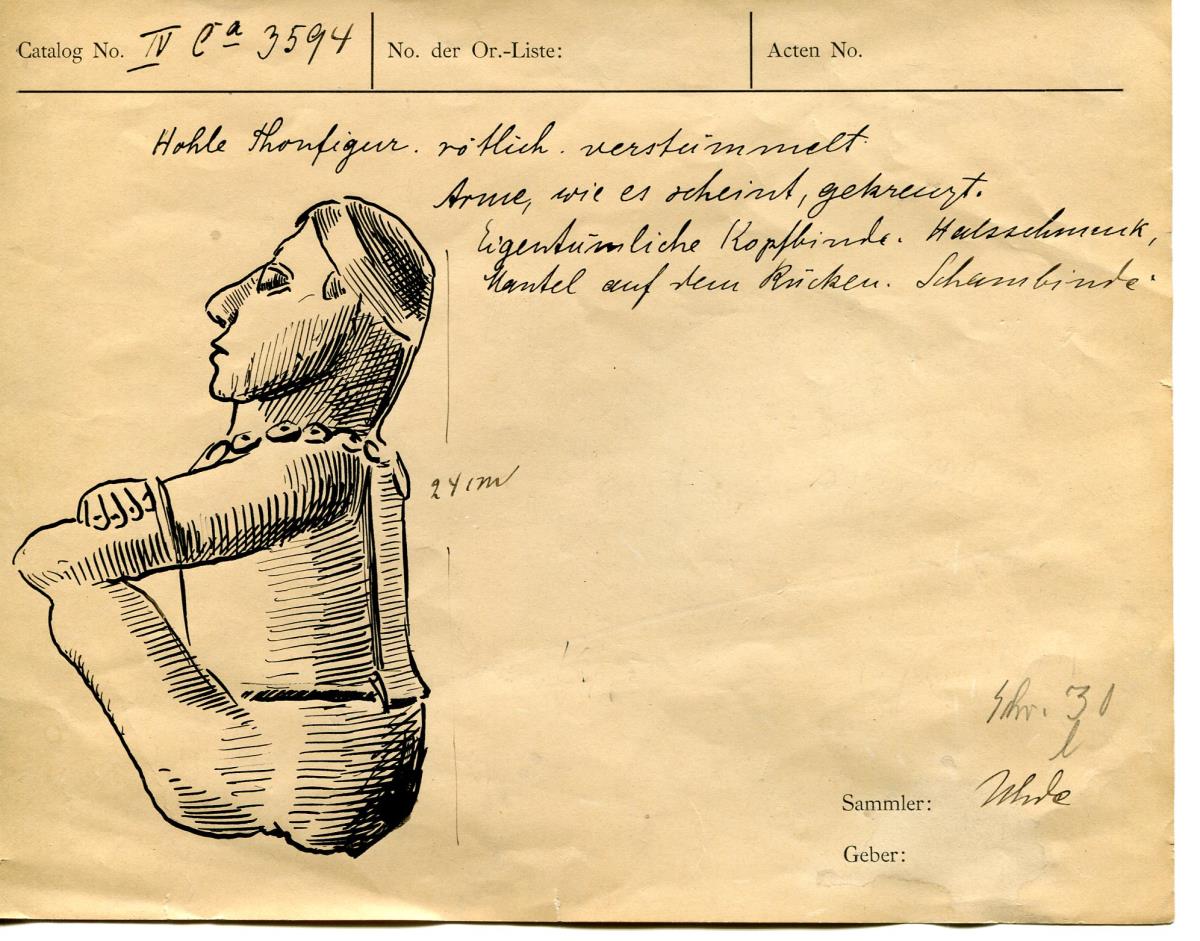 Catalog No. IV Ca 3594
No. der Or.-Liste:
Acten No.
Hohle Thonfigur. rötlich. verstümmelt.
Arme, wie es scheint, gekreuzt.
Eigentümliche Kopfbinde. Halsschmuck,
Mantel auf dem Rücken. Schambinde.
24 cm
Schr. 31
l
Sammler: Uhde
Geber: